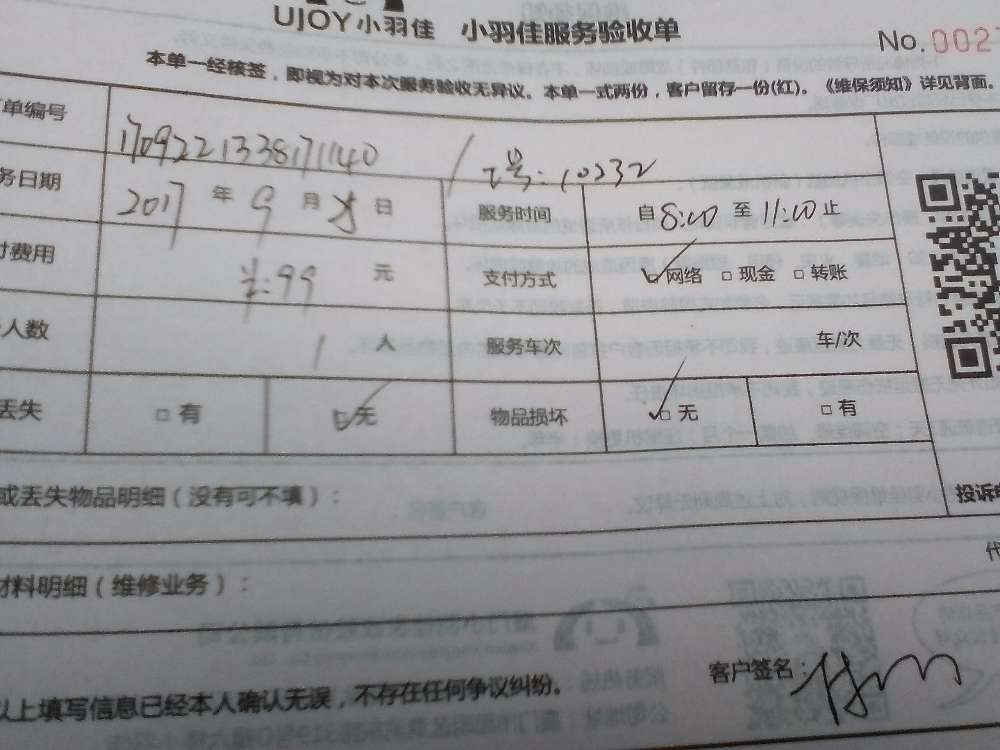 UJOY小羽佳 小羽佳服务验收单
No.002
本单一经核签，即视为对本次服务验收无异议。本单一式两份，客户留存一份(红)。《维保须知》详见背面。
单编号 1709221338171140 / 工号:10232
务日期 2017年9月 日 服务时间 自8:00至11:00止
付费用 ¥:99 元 支付方式 网络 现金 转账
人数 1人 服务车次 车/次
丢失 有 无 物品损坏 无 有
或丢失物品明细（没有可不填）：
投诉
材料明细（维修业务）：
以上填写信息已经本人确认无误，不存在任何争议纠纷。
客户签名：